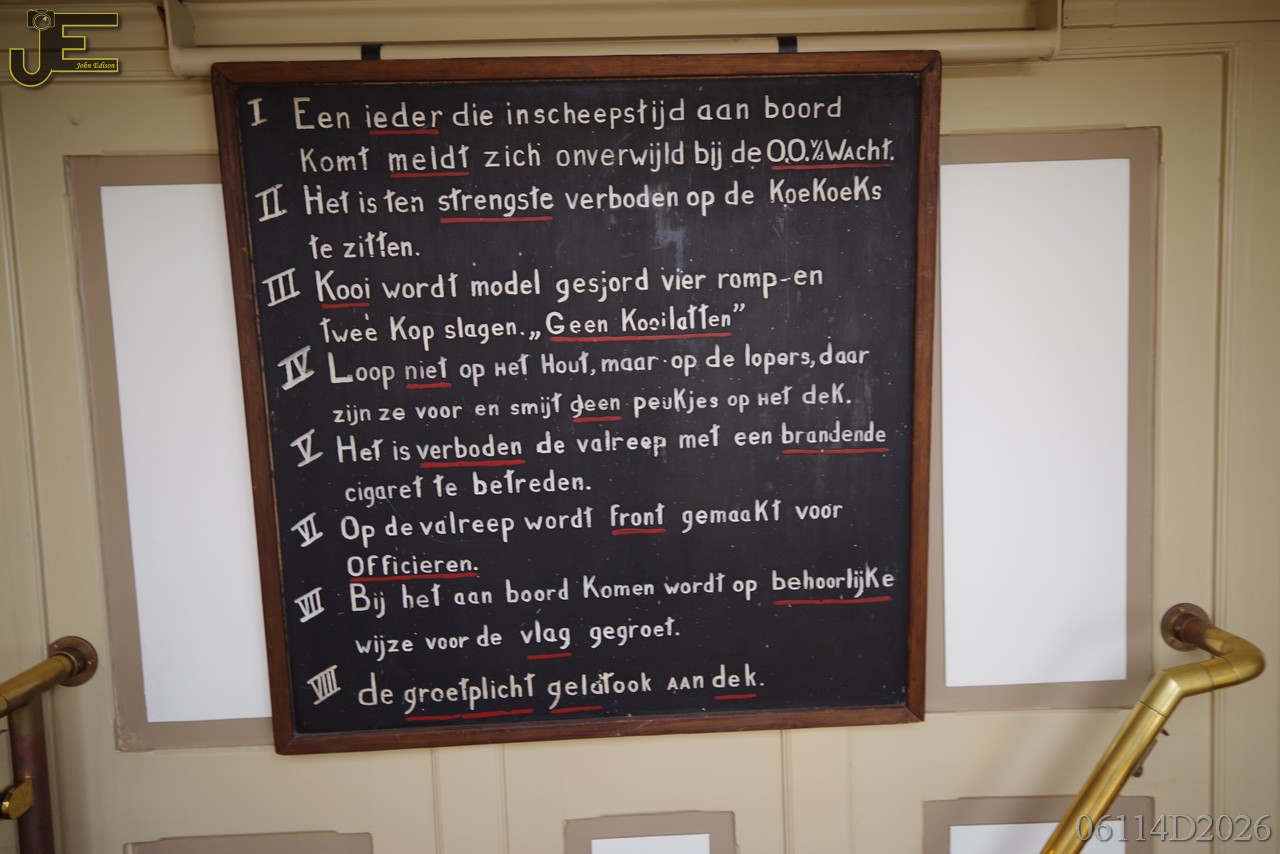 JE
John Edison
I Een ieder die inscheepstijd aan boord
komt meldt zich onverwijld bij de O.O.v/d Wacht.
II Het is ten strengste verboden op de KoeKoeKs
te zitten.
III Kooi wordt model gesjord vier romp-en
tweé Kop slagen. „Geen Kooilatten”
IV Loop niet op het Hout, maar op de lopers, daar
zijn ze voor en smijt geen peukjes op het dek.
V Het is verboden de valreep met een brandende
cigaret te betreden.
VI Op de valreep wordt front gemaakt voor
Officieren.
VII Bij het aan boord Komen wordt op behoorlijke
wijze voor de vlag gegroet.
VIII de groetplicht geldt ook aan dek.
06114D2026